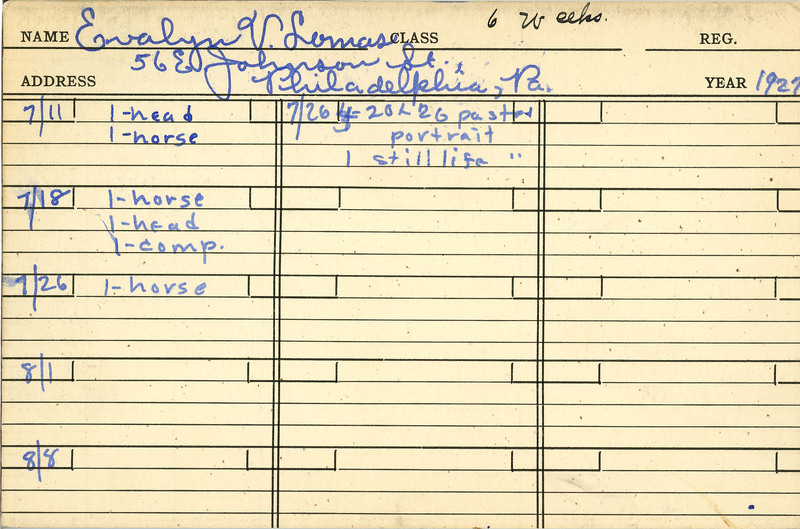 6 weeks.
NAME Evalyn V. Lomas CLASS REG.
56 E. Johnson St.
ADDRESS Philadelphia, Pa. YEAR 1927
7/11 1-head 7/26 20x26 pastel
1-horse portrait
1 still life "
7/18 1-horse
1-head
1-comp.
7/26 1-horse
8/1
8/8